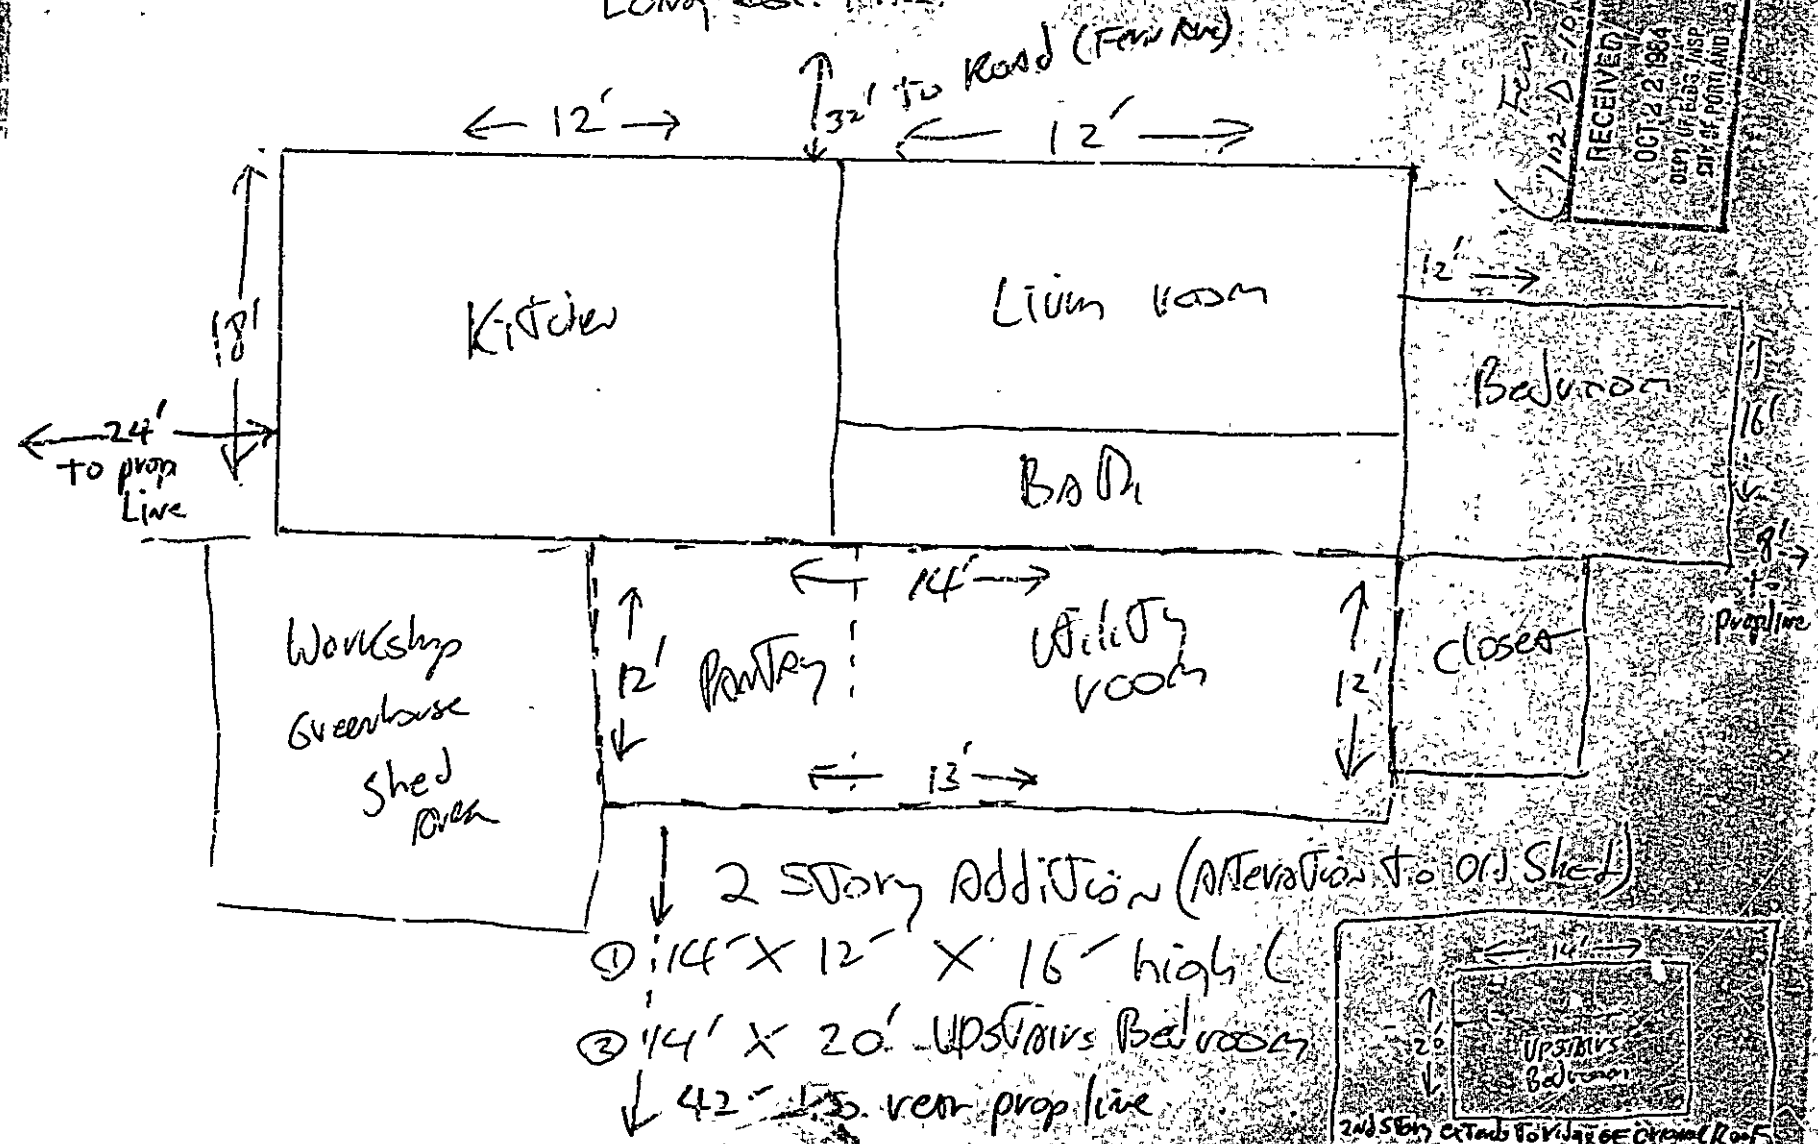 32' to Road (Fern Ave)
12'
12'
RECEIVED
OCT 22 1984
DEPT. OF BLDG. INSP.
CITY OF PORTLAND
18'
Kitchen
Living room
12'
Bedroom
16'
24'
to prop
Line
Bath
8'
to
propline
14'
Workshop
Greenhouse
Shed
Area
12'
Pantry
Utility
room
12'
Closet
13'
2 Story Addition (Alteration to Old Shed)
① 14' X 12' X 16' high (
② 14' X 20' Upstairs Bedroom
42' to rear prop line
14'
20'
Upstairs
Bedroom
2nd Story extends to ridge of